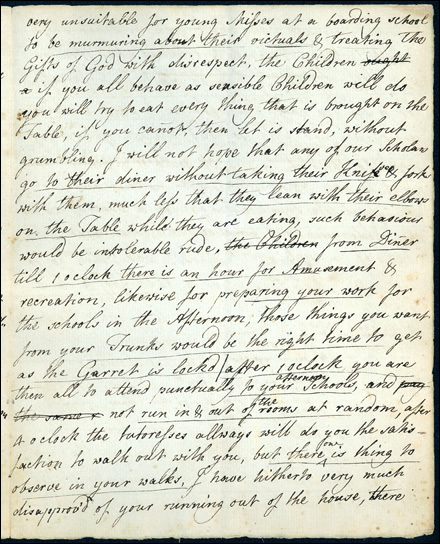 very unsuitable for young Misses at a boarding school
to be murmuring about their victuals & treating the
Gifts of God with disrespect, the Children ought
& if you all behave as sensible Children will do
you will try to eat every thing that is brought on the
Table, if you canot, then let is stand, without
grumbling. I will not hope that any of our Scholars
go to their diner without taking their Knives & fork
with them, much less that they lean with their elbows
on the Table while they are eating, such behaviour
would be intolerable rude, the Children from Diner
till 1 oclock there is an hour for Amusement &
recreation, likewise for preparing your work for
the schools in the Afternoon, those things you want
from your Trunks would be the right time to get
as the Garret is lockd, after 1 oclock you are
then all to attend punctually to your afternoon Schools, and
the same & not run in & out of the rooms at random, after
4 oclock the tutoresses allways will do you the satis-
faction to walk out with you, but there is one thing to
observe in your walks, I have hitherto very much
disapprov'd of your running out of the house, there